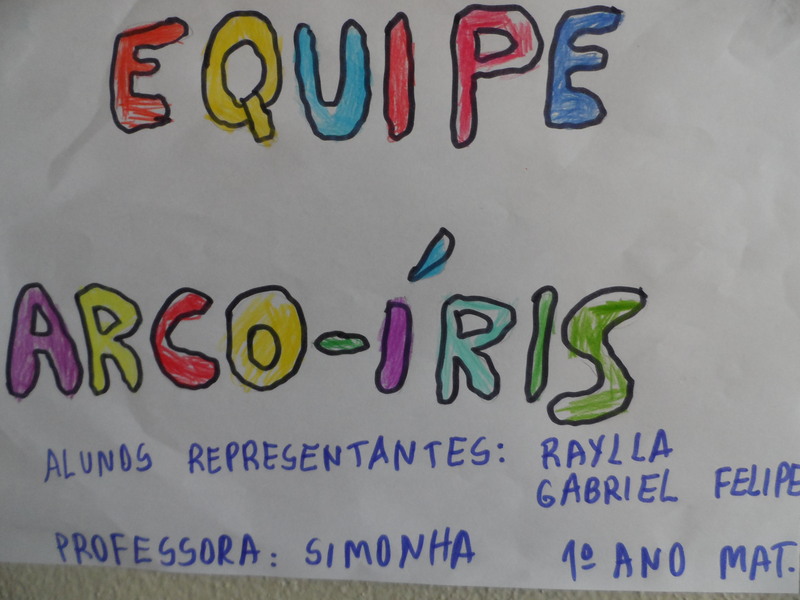 EQUIPE
ARCO-ÍRIS
ALUNOS REPRESENTANTES: RAYLLA
GABRIEL FELIPE
PROFESSORA: SIMONHA 1º ANO MAT.